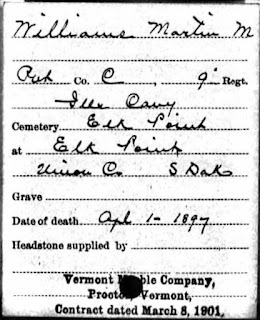 Williams Martin M
Pvt Co. C, 9" Regt.
Ills Cavy
Cemetery Elk Point
at Elk Point
Union Co. S Dak
Grave
Date of death Apl 1 - 1897
Headstone supplied by
Vermont Marble Company,
Proctor, Vermont,
Contract dated March 8, 1901.